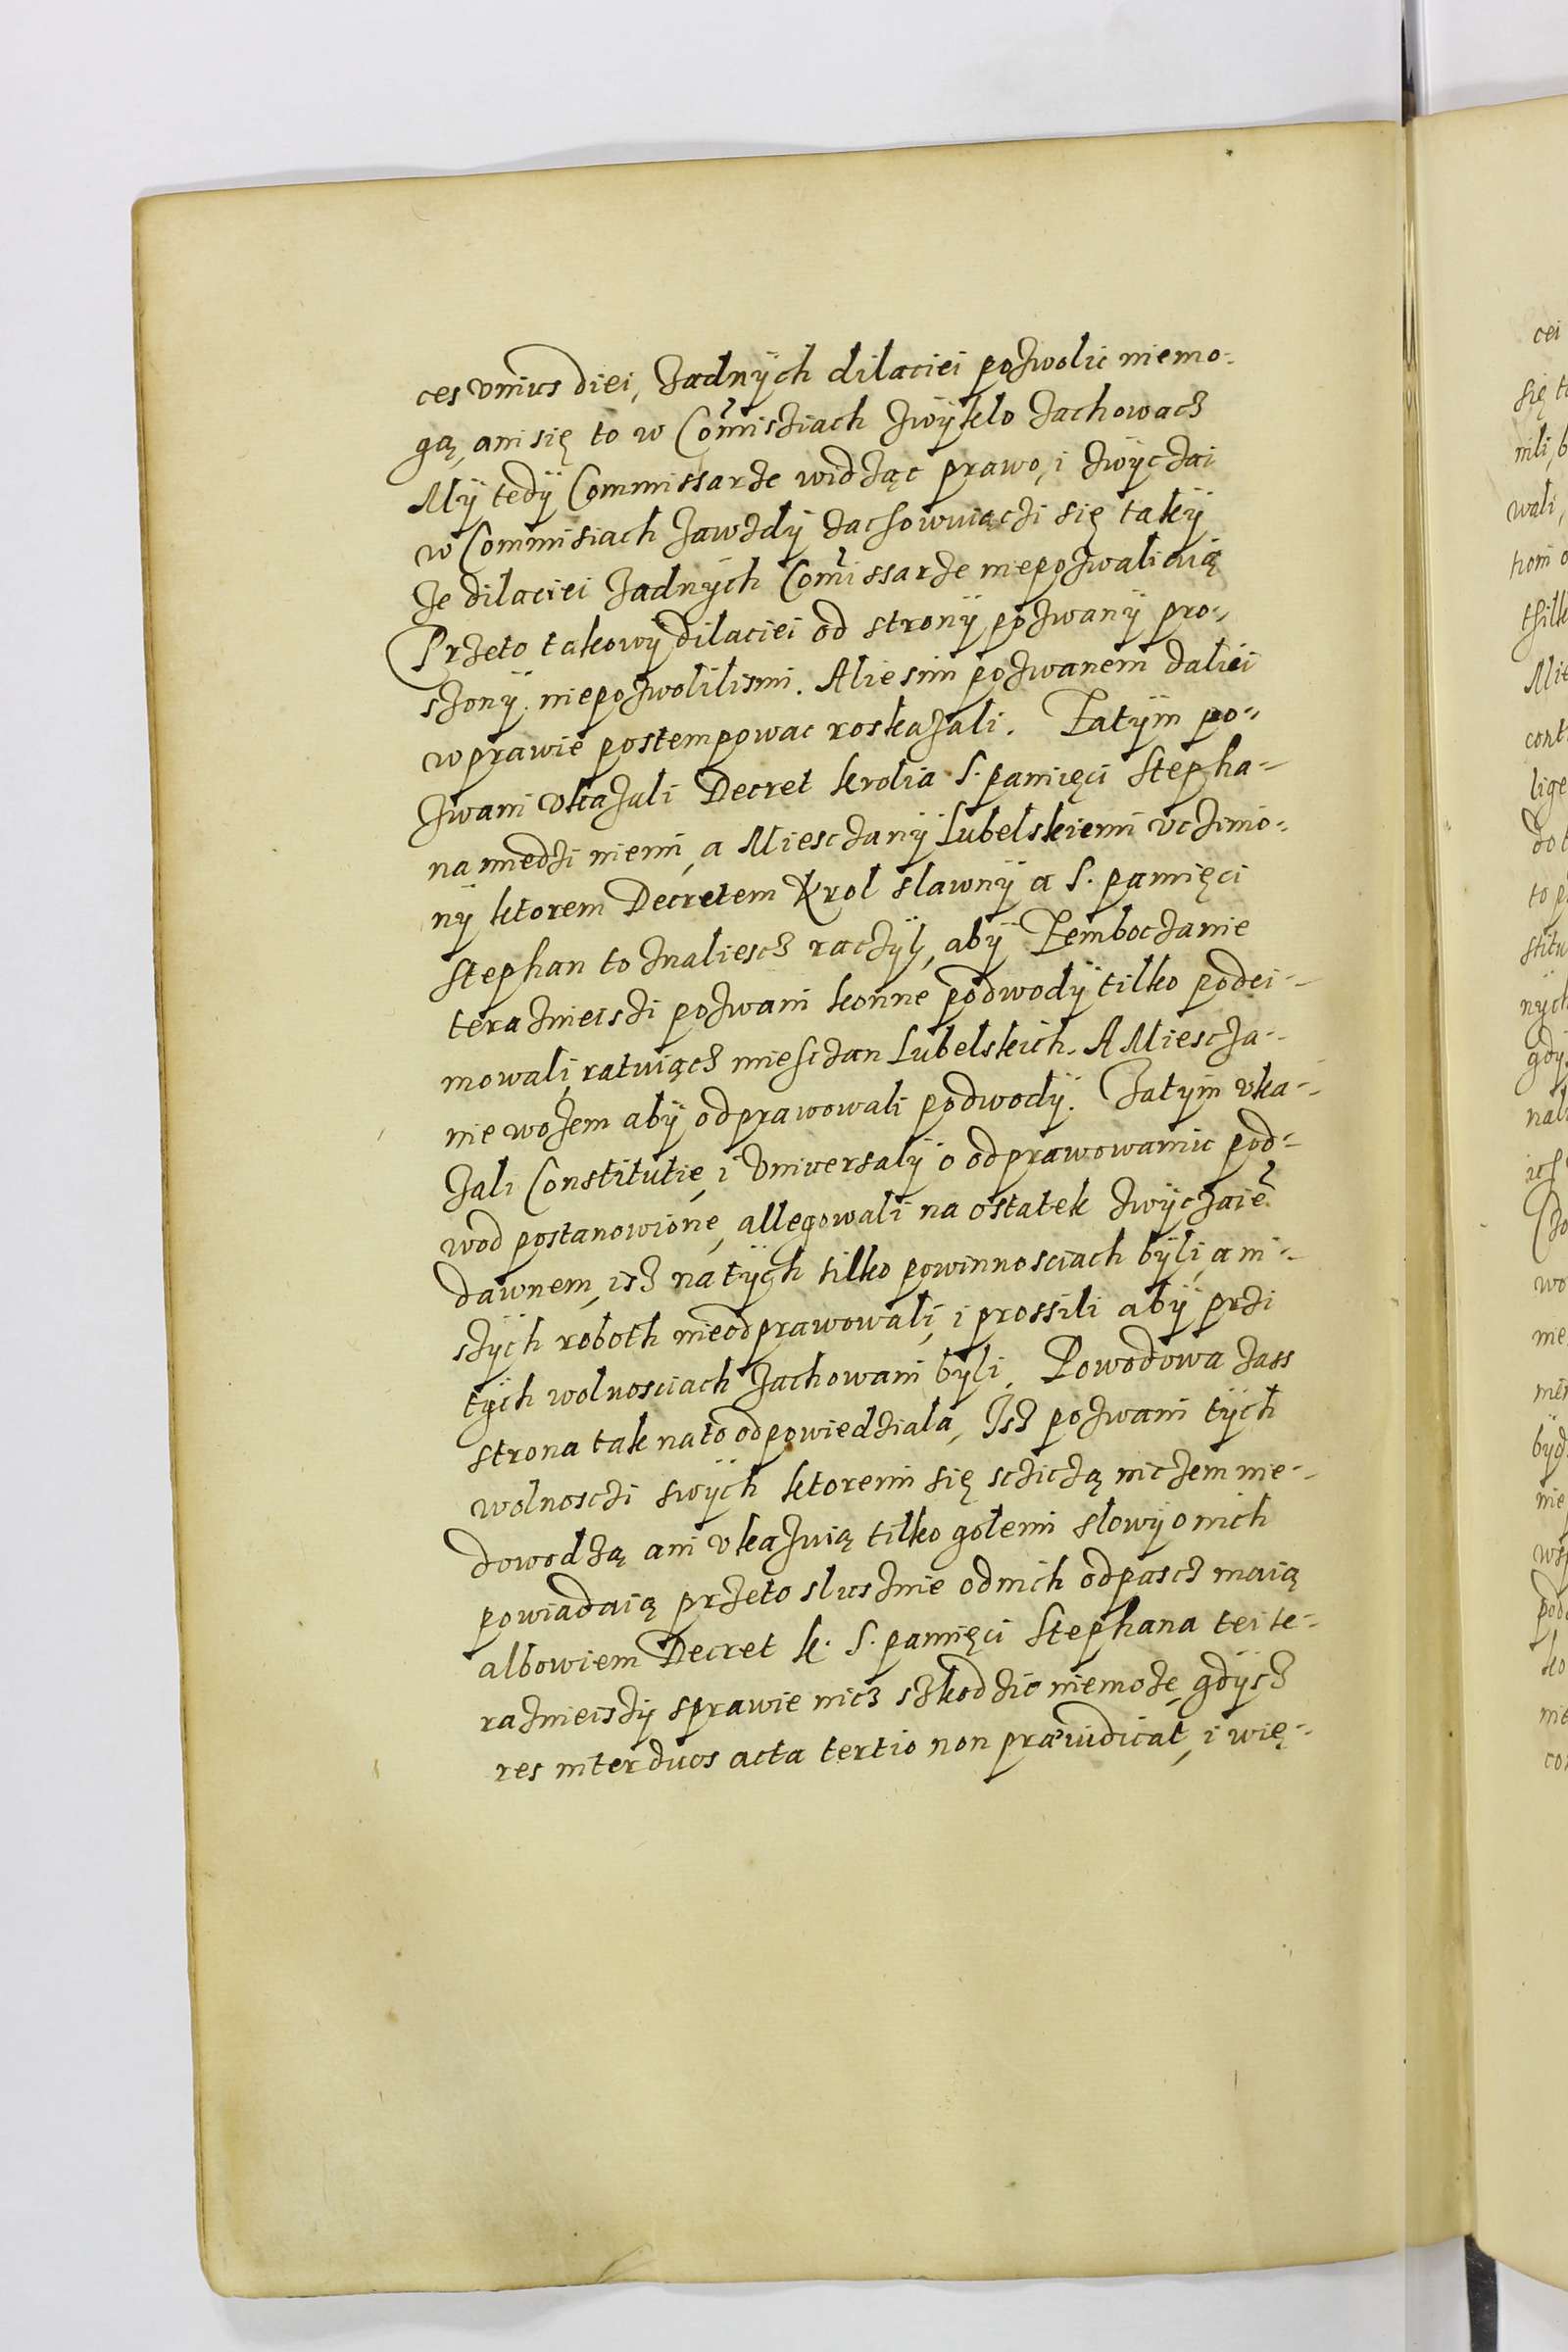 ces vnius diei, zadnÿch dilaciei pozwolic niemo-
gą, ani się to w Com̃isziach zwÿklo zachowacz
Mÿ tedÿ Commissarze widząc prawo, i zwÿczai
w Commisiach zawzdÿ zachowuiączi się takÿ
ze dilaciei zadnÿch Com̃issarze niepozwalaią
Przeto takowÿ dilaciei od stronÿ pozwanÿ pro-
szonÿ. niepozwolilismi. Ale sim pozwanem daliei
w prawie postempowac roskazali. Zatÿm po-
zwani vkazali Decret krolia S. pamięci Stepha-
na miedzi niemi, a Miesczanÿ Lubelskiemi vczinio-
nÿ ktorem Decretem Krol slawnÿ a S. pamięci
Stephan to znaliescz raczÿl, abÿ Zemboczanie
teraznieiszi pozwani konne podwodÿ tilko podei-
mowali, ratuiącz miesczan Lubelskich. A Miescza-
nie wozem abÿ odprawowali podwodÿ. Zatÿm vka-
zali Constitutię, i Vniversalÿ o odprawowaniu pod-
wod postanowione, allegowali na ostatek zwÿczaiẽ
dawnem, isz na tÿch tilko powinnosciach bÿli, a ni-
szÿch roboth nieodprawowali, i prossili abÿ przi
tÿch wolnosciach zachowani bÿli. Powodowa zass
strona tak na to odpowiedziala, Isz pozwani tÿch
wolnosczi swÿch ktoremi się sczicżą niczem nie-
dowodzą ani vkazuią tilko golemi slowÿ o nich
powiadaią przeto slusznie od nich odpascz maią
albowiem Decret k. S. pamięci Stephana tei te-
raznieiszÿ sprawie nicz szkodzic niemoże, gdÿsz
res inter duos acta tertio non præiudicat, i wię-